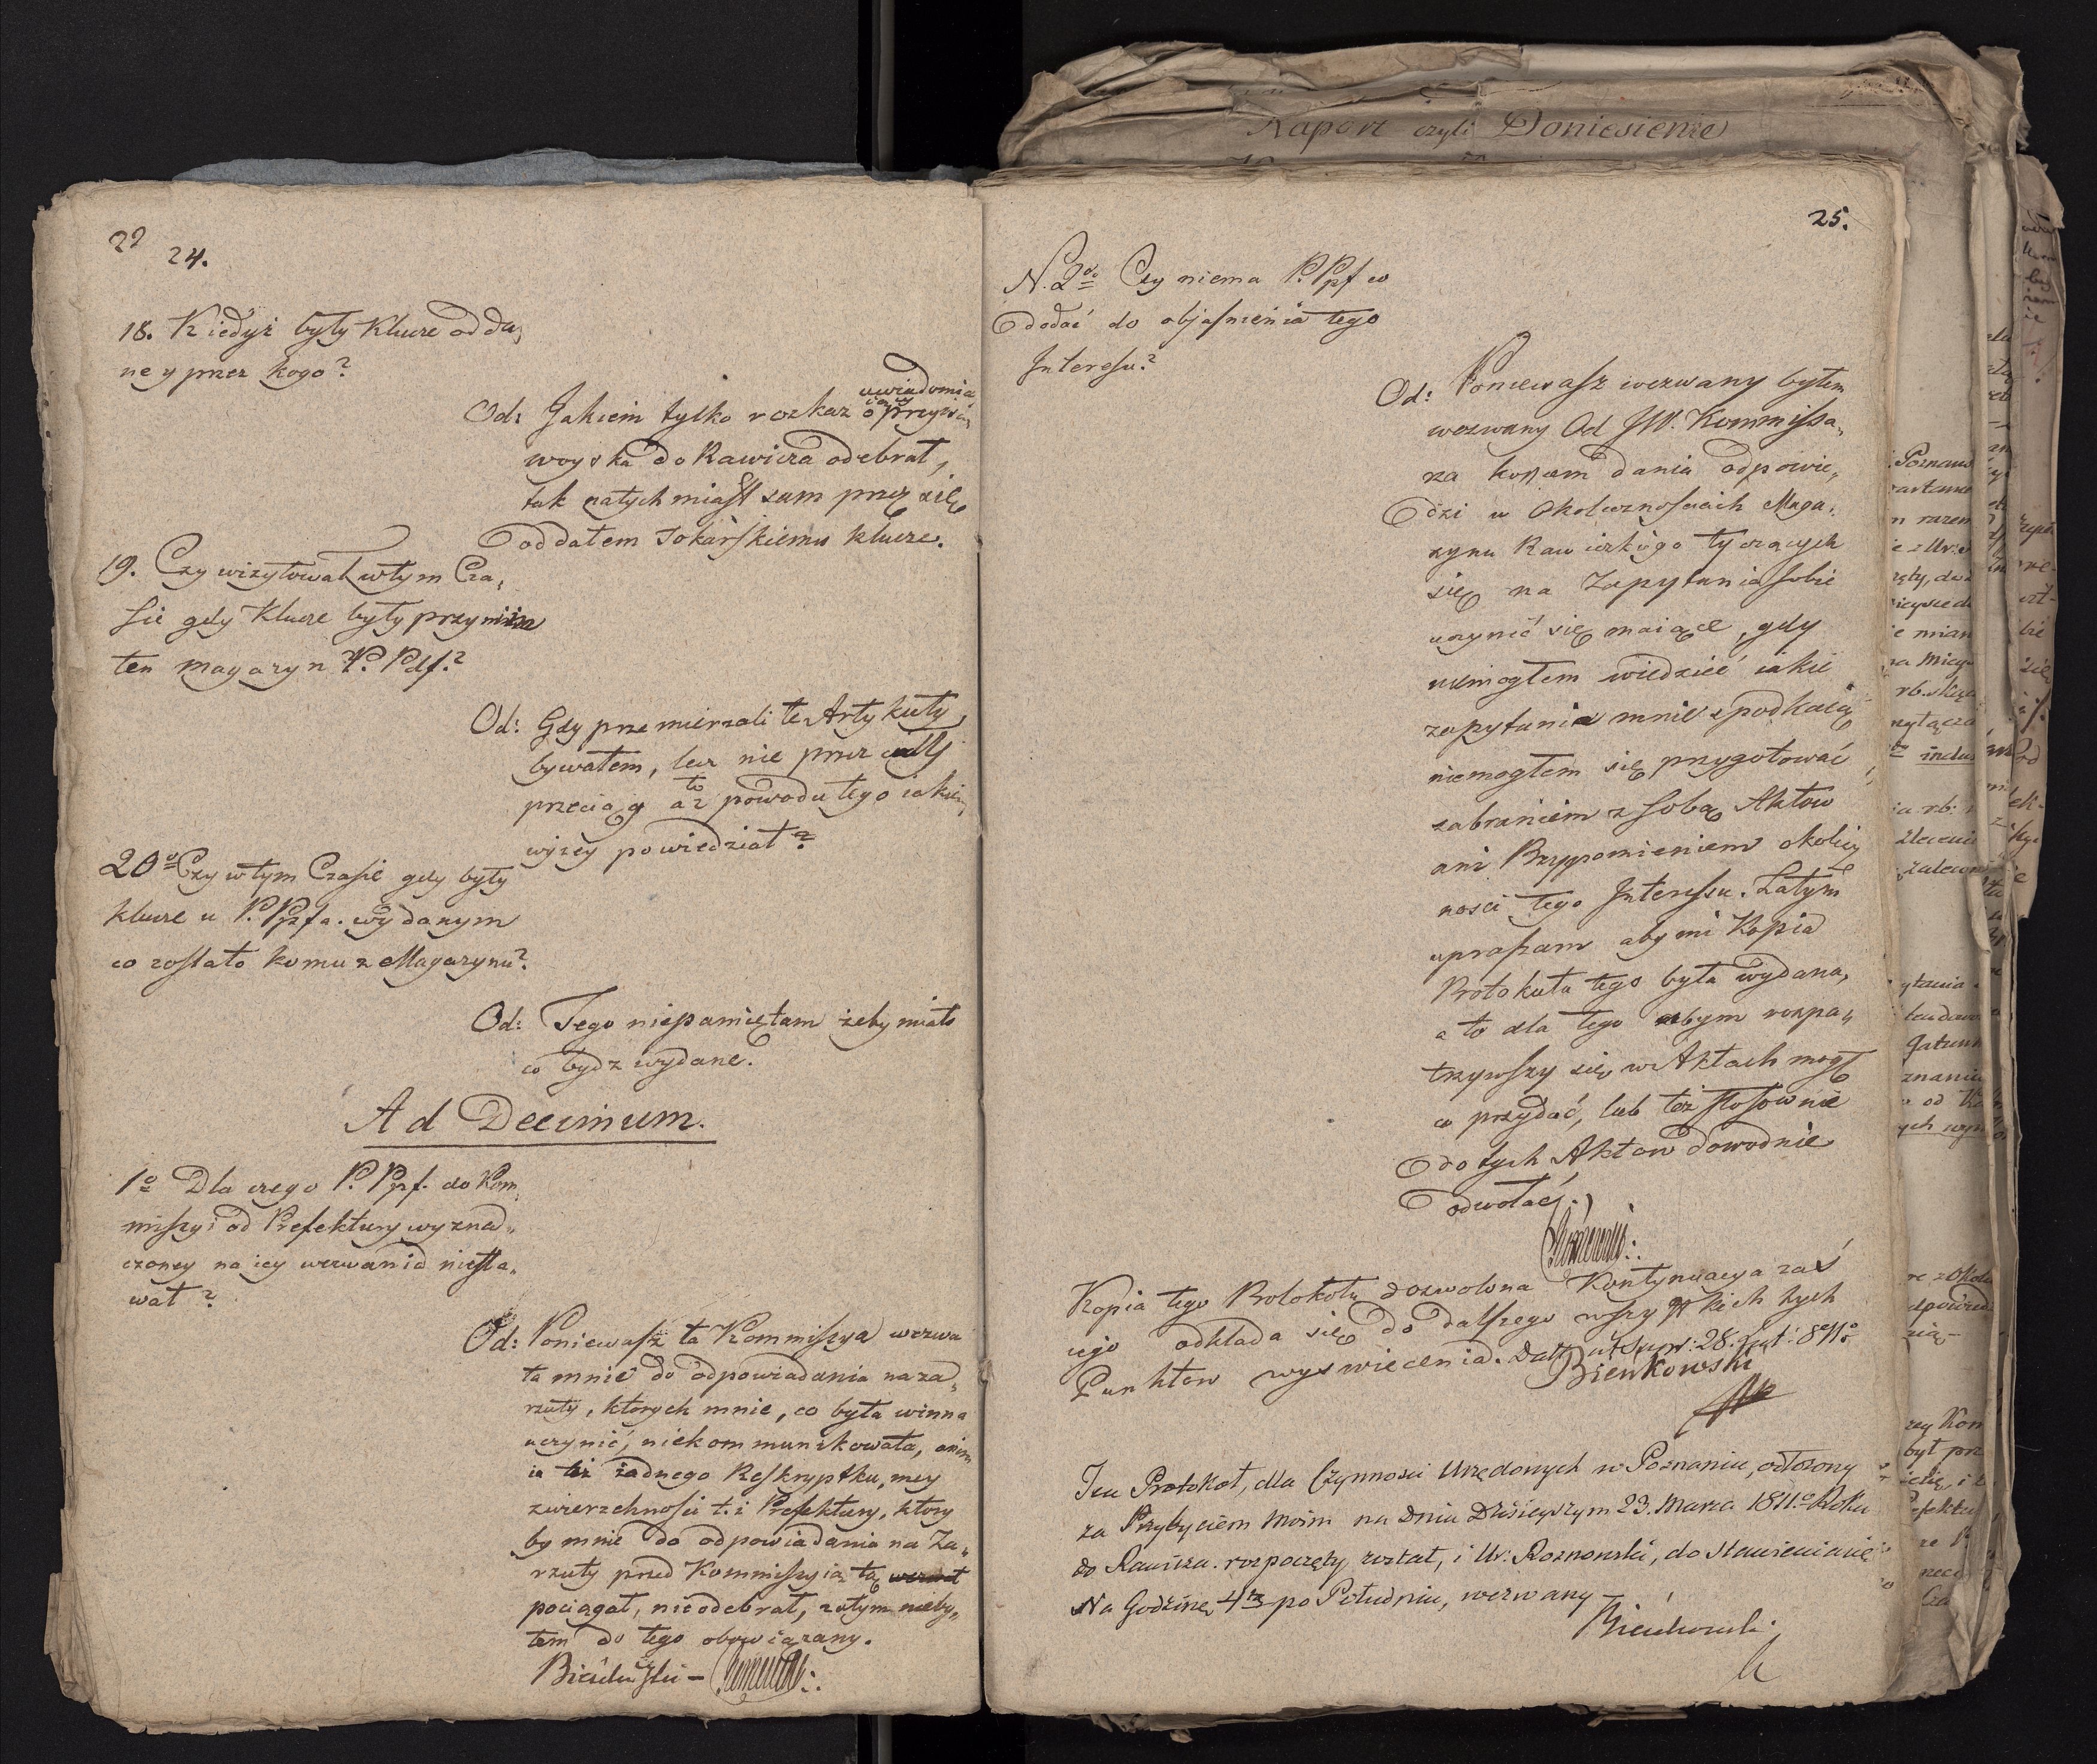 22
24.
18. Kiedyż były klucze odda„
ne y przez kogo?
uwiadomia
iący
Od: Jakiem tylko rozkaz o przyiściu
woyska do Rawicza odebrał,
tak natychmiast sam przez się
oddałem Tokarskiemu klucze.
19. Czy wizytował w tym Cza„
sie gdy klucze były przy nim
ten magazyn P. Pdf.?
Od: Gdy przemierzali te Artykuły
bywałem, lecz nie przez cały
przeciąg a to z powodu tego iakiem
wyżey powiedział?
20o Czy w tym Czasie gdy były
klucze u P. Ppfa. wydanym
co zostało komu z Magazynu?
Od: Tego niepamiętam żeby miało
co bydz wydane.
Ad Decimum.
1o Dla czego P. Ppf. do Kom„
missyi od Prefektury wyzna„
czoney na iey wezwania niesta„
wał?
Od: Poniewasz ta Kommissya wezwa
ła mnie do odpowiadania na za„
rzuty, ktorych mnie, co była winna
uczynić, niekommunikowała, anim
ia też żadnego Reskryptku, mey
zwierzchności t. i Prefektury, ktory
by mnie do odpowiadania na Za„
rzuty przed Kommissyią tą
pociągał, nieodebrał, zatym nieby„
łem do tego obowiązany.
Bieńkowski –
Raport czyli Doniesienie
25.
N. 2o Czy niema P. Ppf co
dodać do objasnienia tego
Interesu?
Od: Poniewasz wezwany byłem
wezwany Od JW. Kommissa„
rza końcem dania odpowie„
dzi w okolicznosciach Maga„
zynu Rawickiego tyczących
się na Zapytania sobie
uczynić się maiące, gdy
niemogłem wiedzieć iakie
zapytania mnie spodkaią
niemogłem się przygotować
zabraniem z sobą Aktow
ani Przypomieniem okolicz
nosci tego Interessu. Zatym
upraszam aby mi Kopia
Protokuła tego była wydana,
a to dla tego abym rozpa„
trzywszy się w Aktach mogł
co przydać, lub też stosownie
do tych Aktow dowodnie
odwołać.
Kopia tego Protokołu dozwolona Kontynuacya zaś
iego odkłada się do dalszego wszystkich tych
Punktow wyswiecenia. Datt ut Supr: 28. Lut: 811o
Bieńkowski
Ten Protokoł, dla Czynnosci Urzędowych w Poznaniu, odłożony
za Przybyciem Moim na Dniu Dzisieyszym 23. Marca 1811o Roku
do Rawicza. rozpoczęty został, i Ur: Roznowski, do stawienia się
Na Godzinę 4tą po Południu, wezwany
Bieńkowski